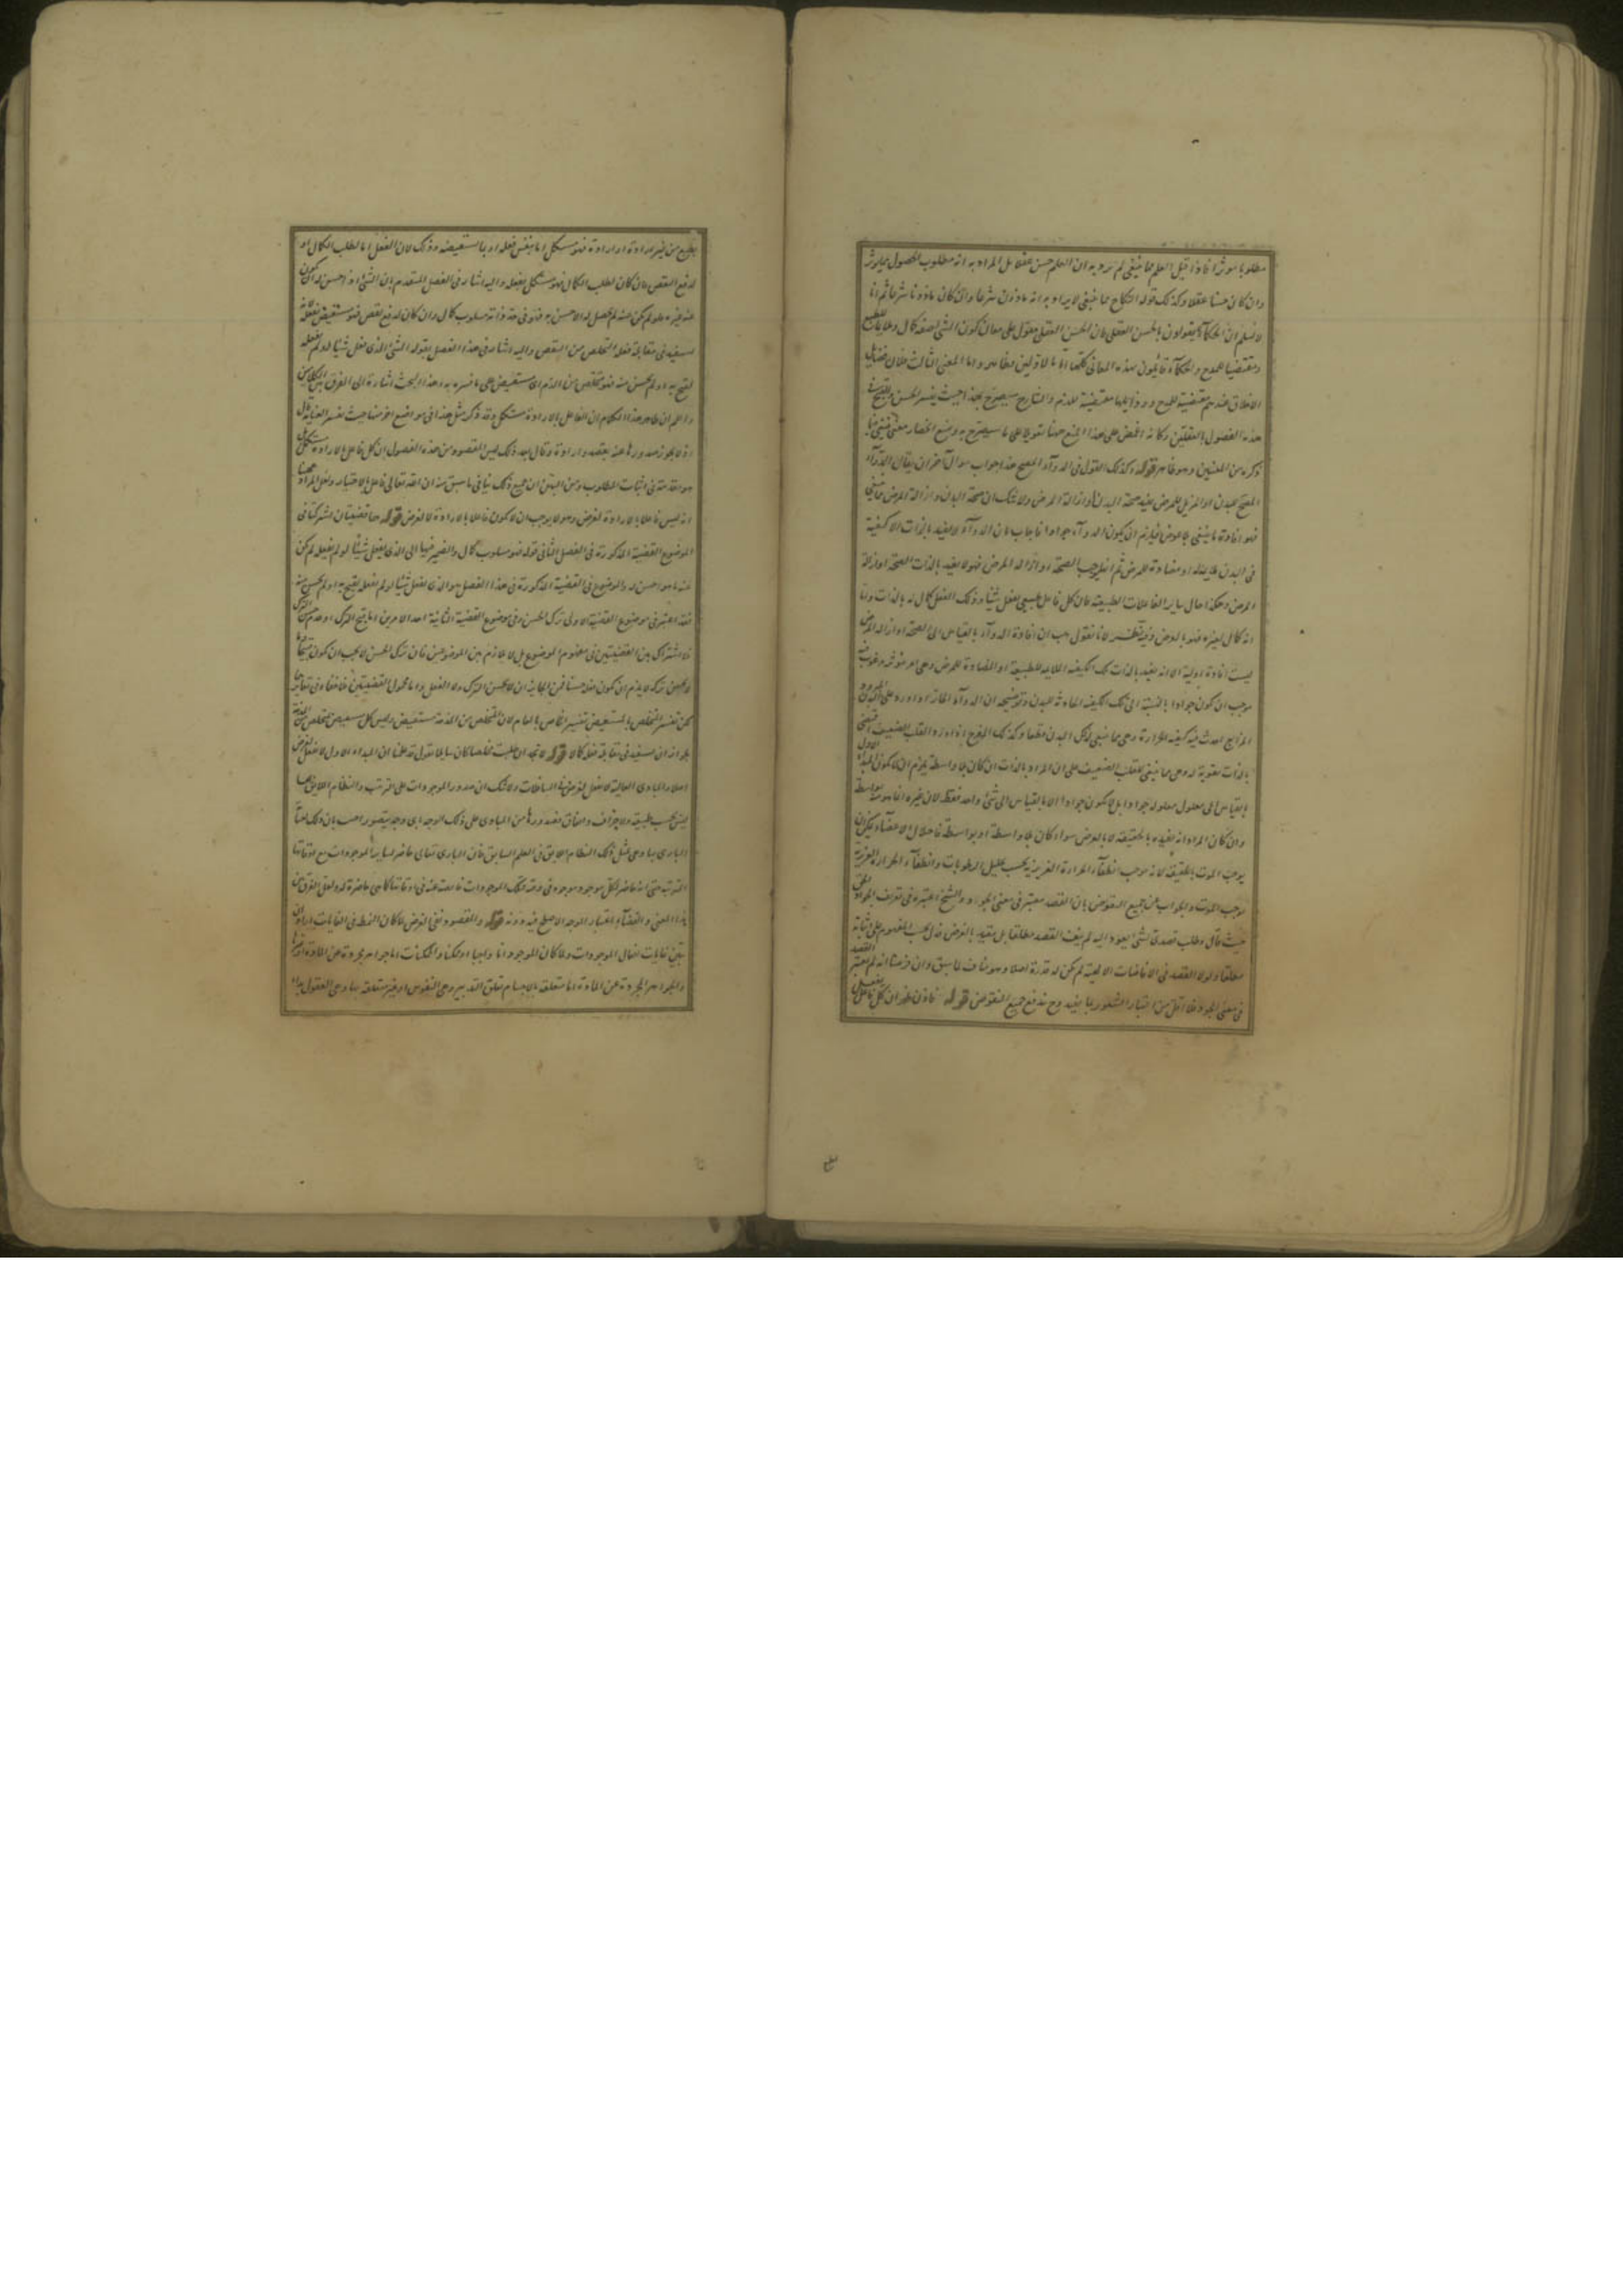 مطلوبا موثرا فاذا قيل العلم مما ينبغى لم يرد به ان العلم حسن عقلا بل المراد به انه مطلوب الحصول مما يوثر
وان كان حسنا عقلا وكذلك قوله النكاح مما ينبغى لا يراد به انه ماذون شرعا وان كان ماذونا شرعا ثم انا
لا نسلم ان الحكماء لا يقولون بالحسن العقلى فان الحسن العقلى مقول على معان كون الشئ صفة كال وملايما للطبع
ومقتضيا للمدح والحكماء قايلون بهذه المعانى كلها اما الاولين فظاهر واما المعنى الثالث فلان فضايل
الاخلاق عندهم مقتضية للمدح ورذايلها مقتضية للذم والشارح سيصرح بهذا حيث يفسر الحسن والقبيح فى
هذه الفصول بالعقليين وكانه اغمض على هذا المنع هنا تعويلا على ما سيصرح به ومنع انحصار معنى ينبغى فيما
ذكره من المعنيين وهو ظاهر قوله وكذلك القول فى الدوآء المصحح هذا جواب سوال آخر ان يقال الدوآء
المصحح للبدن او المزيل للمرض يفيد صحة البدن او ازالة المرض ولا شك ان صحة البدن وازالة المرض مما ينبغى
فهو افادة ما ينبغى لا لعوض فيلزم ان يكون الدوآء جوادا فاجاب بان الدوآء لا يفيد بالذات الا كيفية
فى البدن ملايمة او مضادة للمرض ثم انها توجب الصحة او ازالة المرض فهو لا يفيد بالذات الصحة او ازالة
المرض وهكذا حال ساير الفاعلات الطبيعية فان كل فاعل طبيعى يفعل شيئا وذلك الفعل كمال له بالذات واما
انه كمال لغيره فهو بالعرض وفيه نظر لانا نقول هب ان افادة الدوآء بالقياس الى الصحة او ازالة المرض
ليست افادة اولية الا انه يفيد بالذات تلك الكيفية الملايمة للطبيعة او المضادة للمرض وهى امر موثر مرغوب فيه
فوجب ان يكون جوادا بالنسبة الى تلك الكيفية الحادثة للبدن وتوضيحه ان الدوآء الحار اذا ورد على البدن
المزاج احدث فيه كيفية الحرارة وهى مما ينبغى لذلك البدن قطعا وكذلك المفرح اذا ورد القلب الضعيف اقتضى
بالذات تقوية له وهى مما ينبغى للقلب الضعيف على ان المراد بالذات ان كان بلا واسطة يلزم ان لا يكون المبدا الاول
بالقياس الى معلول معلوله جوادا بل لا يكون جوادا الا بالقياس الى شئ واحد فقط لان غيره انما هو منه بواسطة
وان كان المراد انه يفيده بالحقيقة لا بالعرض سواء كان بلا واسطة او بواسطة
يوجب الموت بالحقيقة لانه موجب انطفآء الحرارة الغريزية بحسب تحليل الرطوبات وانطفآء الحرارة الغريزية
موجب الموت والجواب عن جميع النقوض بان القصد معتبر فى معنى الجود والشيخ اعتبره فى تعريف الجواد
حيث قال وطلب قصدى لشئ يعود اليه لم ينف القصد مطلقا بل مقيد بالغرض فدل بحسب المفهوم على اثباته
مطلقا ولولا القصد فى الافاضات الالهية لم يكن له قدرة اصلا وهو مناف لما سبق وان فرضنا انه لم يعتبر القصد
فى معنى الجود فلا اقل من اعتبار الشعور بما يفيد وح تندفع جميع النقوض قوله فاذن ظهر ان كل فاعل يفعل
بطبع من غير ارادة او ارادة فهو مستكمل اما بنفس فعله او بما يستعيضه وذلك لان الفعل اما لطلب الكمال او
لدفع النقص فان كان لطلب الكمال فهو مستكمل بفعله واليه اشار فى الفصل المتقدم بان الشئ اذا حسن له ان يكون
عنه غيره فلو لم يكن عنه لم يحصل له الاحسن به فهو فى حد ذاته مسلوب كمال وان كان لدفع نقص فهو مستعيض بفعله لانه
يستفيد فى مقابلة فعله التخلص من النقص واليه اشار فى هذا الفصل بقوله الشئ الذى يفعل شيئا لو لم يفعله
لقبح به او لم يحسن منه فهو متخلص من الذم اى مستعيض على ما فسره به وهذا البحث اشارة الى الفرق بين الكلامين
واعلم ان ظاهر هذا الكلام ان الفاعل بالارادة مستكمل وقد ذكر مثل هذا فى مواضع اخر منها حيث يفسر العناية قال
اذ لا يجوز صدورها عنه بقصد وارادة وقال بعد ذلك ليس المقصود من هذه الفصول ان كل فاعل بالارادة مستكمل
هو مقدمة فى اثبات المطلوب ومن البين ان جميع ذلك ينافى ما سبق منه ان الله تعالى فاعل بالاختيار ولعل المراد ههنا
انه ليس فاعلا بالارادة لغرض وهو لا يوجب ان لا يكون فاعلا بالارادة لا لغرض قوله هما قضيتان اشتركتا فى
الموضوع القضية المذكورة فى الفصل الثانى قوله فهو مسلوب كمال والضمير فيها الى الذى يفعل شيئا لو لم يفعله لم يكن
عنه ما هو احسن له والموضوع فى القضية المذكورة فى هذا الفصل هو الذى يفعل شيئا لو لم يفعله يقبح به او لم يحسن منه
فقد اعتبر فى موضوع القضية الاولى ترك الحسن وفى موضوع القضية الثانية احد الامرين اما قبح الترك او عدم حسن الترك
فلا اشتراك بين القضيتين فى مفهوم الموضوع بل لا تلازم بين الموضوعين فان ترك الحسن لا يجب ان يكون قبيحا
لكن تفسير المتخلص بالمستعيض تفسير الخاص بالعام لان المتخلص من المذمة مستعيض وليس كل مستعيض متخلص من المذمة
لجواز ان يستفيد فى مقابلة فعله كمالا قوله لا تجد ان طلبت مخلصا كان سايلا يقول قد علمنا ان المبداء الاول لا يفعل لغرض
اصلا والمبادى العالية لا يفعل لغرض فى السافلات ولا شك ان صدور الموجودات على الترتيب والنظام اللايق بها
ليس بحسب طبيعة ولا جزاف واتفاق فصدورها من المبادى على ذلك الوجه باى وجه يتصور اجيب بان ذلك لعناية
البارى بها وهى تمثل ذلك النظام اللايق فى العلم السابق فان البارى تعالى حاضر لساير الموجودات مع اوقاتها
بهذا المعنى والقضآء اعتبار الوجه الاصلح فيه دونه قوله والمقصود نفى الغرض لما كان النمط فى الغايات اراد ان
يتبين غايات افعال الموجودات ولما كان الموجود اما واجبا او ممكنا والممكنات اما جواهر مجردة عن المادة او غيرها
والجواهر المجردة عن المادة اما متعلقة بالاجسام تعلق التدبير وهى النفوس او غير متعلقة بها وهى العقول بداء